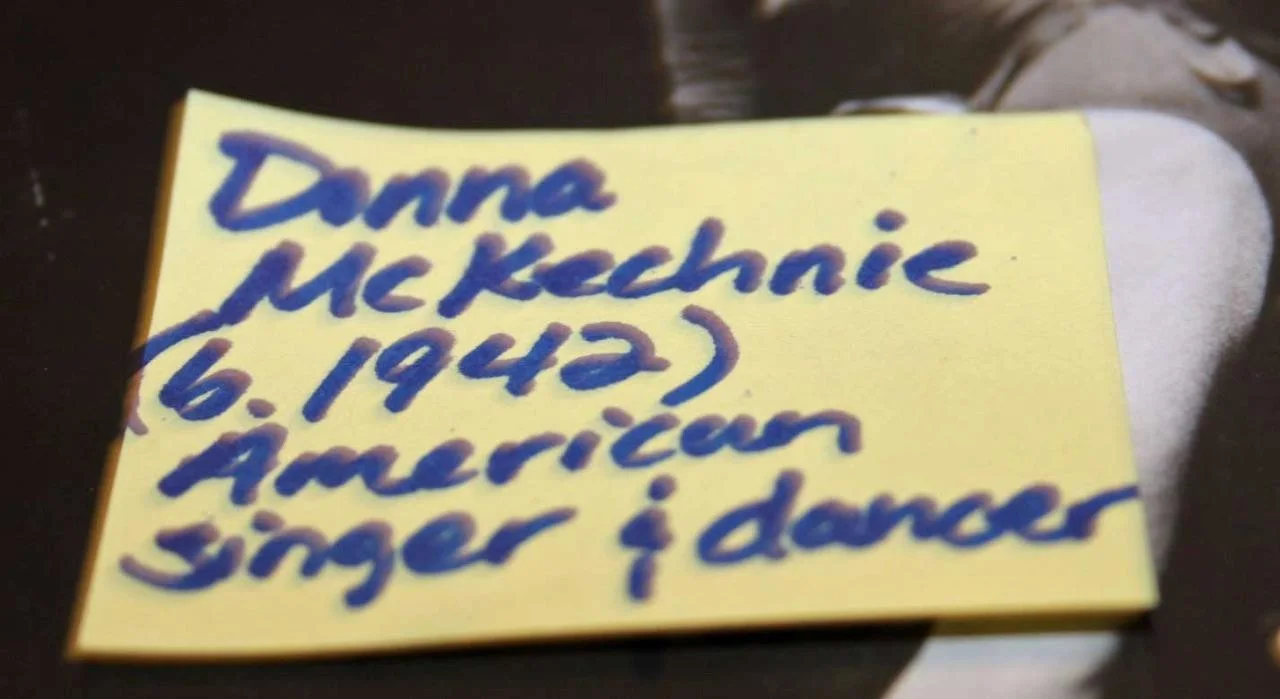 Donna
McKechnie
(b. 1942)
American
singer & dancer